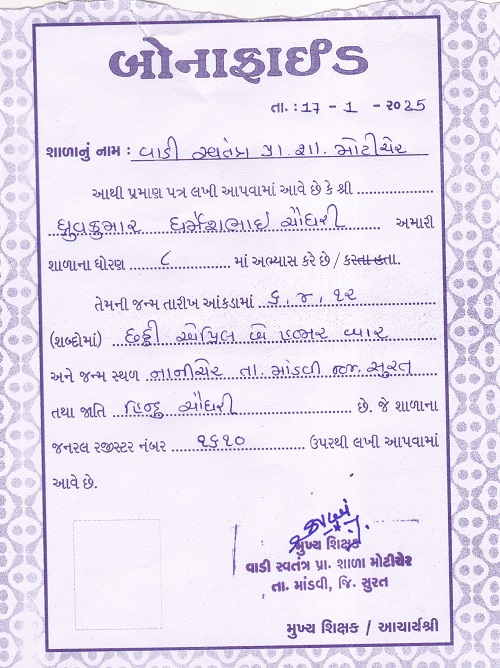 બોનાફાઈડ
તા. : 17 - 1 - ૨૦25
શાળાનું નામ : વાડી સ્વતંત્ર પ્રા. શા. મોટીચેર
આથી પ્રમાણ પત્ર લખી આપવામાં આવે છે કે શ્રી
ધ્રુવકુમાર ધર્મેશભાઇ ચૌધરી અમારી
શાળાના ધોરણ ૮ માં અભ્યાસ કરે છે / કરતા હતા.
તેમની જન્મ તારીખ આંકડામાં ૬, ૪, ૧૨
(શબ્દોમાં) છઠ્ઠી એપ્રિલ બે હજાર બાર
અને જન્મ સ્થળ નાનીચેર તા. માંડવી જી. સુરત
તથા જાતિ હિન્દુ ચૌધરી છે. જે શાળાના
જનરલ રજીસ્ટર નંબર ૧૬૧૦ ઉપરથી લખી આપવામાં
આવે છે.
મુખ્ય શિક્ષક
વાડી સ્વતંત્ર પ્રા. શાળા મોટીચેર
તા. માંડવી, જિ. સુરત
મુખ્ય શિક્ષક / આચાર્યશ્રી